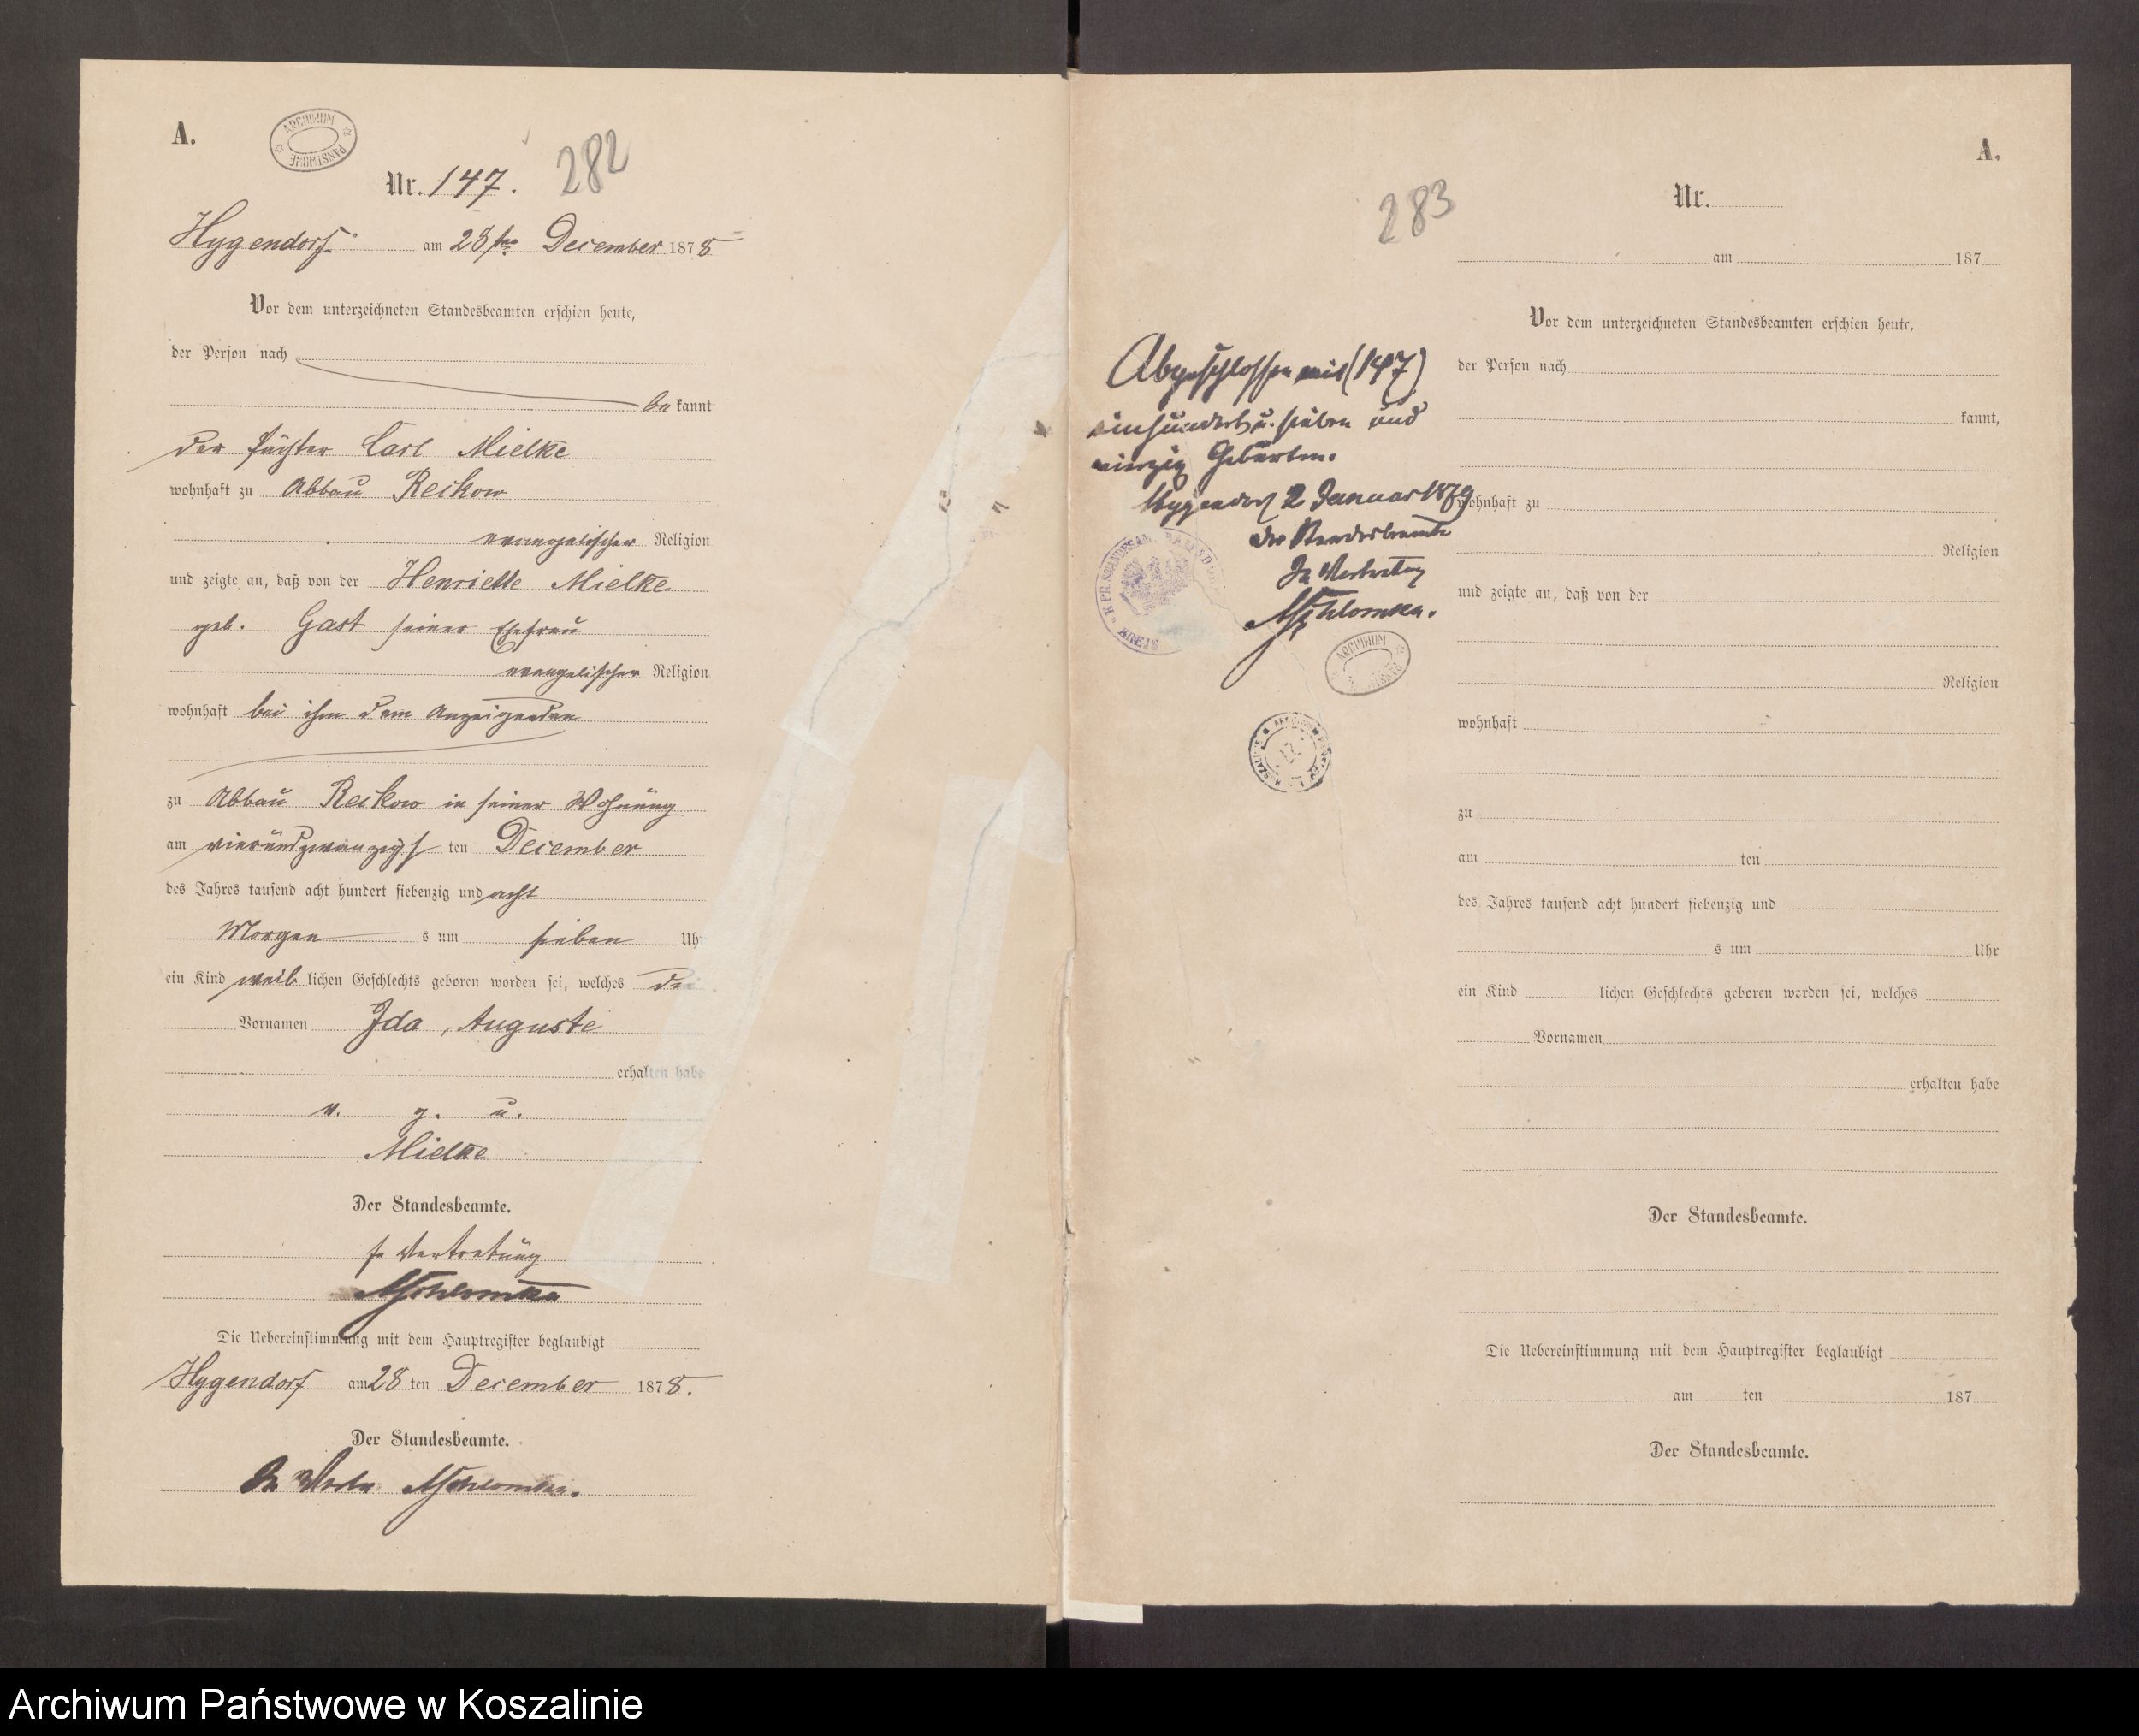 A.
ARCHIWUM PAŃSTWOWE
Nr. 147.
282
Hygendorf am 28ten December 1878
Vor dem unterzeichneten Standesbeamten erschien heute,
der Person nach
be kannt
der Pächter Carl Mielke
wohnhaft zu Abbau Reckow
evangelischer Religion
und zeigte an, daß von der Henriette Mielke
geb. Gast seiner Ehefrau
evangelischer Religion
wohnhaft bei ihm dem Anzeigenden
zu Abbau Reckow in seiner Wohnung
am vierundzwanzigs ten December
des Jahres tausend acht hundert siebenzig und acht
Morgen s um sieben Uhr
ein Kind weib lichen Geschlechts geboren worden sei, welches die
Vornamen Ida, Auguste
erhalten habe
v. g. u.
Mielke
Der Standesbeamte.
In Vertretung
Die Uebereinstimmung mit dem Hauptregister beglaubigt
Hygendorf am 28 ten December 1878.
Der Standesbeamte.
In Vertr.
A.
283
Nr.
am 187
Vor dem unterzeichneten Standesbeamten erschien heute,
der Person nach
kannt,
wohnhaft zu
Religion
und zeigte an, daß von der
Religion
wohnhaft
zu
am ten
des Jahres tausend acht hundert siebenzig und
s um Uhr
ein Kind lichen Geschlechts geboren worden sei, welches
Vornamen
erhalten habe
Der Standesbeamte.
Die Uebereinstimmung mit dem Hauptregister beglaubigt
am ten 187
Der Standesbeamte.
Abgeschlossen mit (147)
einhundert u. sieben und
vierzig Geburten.
Hygendorf 2 Januar 1879
Der Standesbeamte
In Vertretung
ARCHIWUM
Archiwum Państwowe w Koszalinie